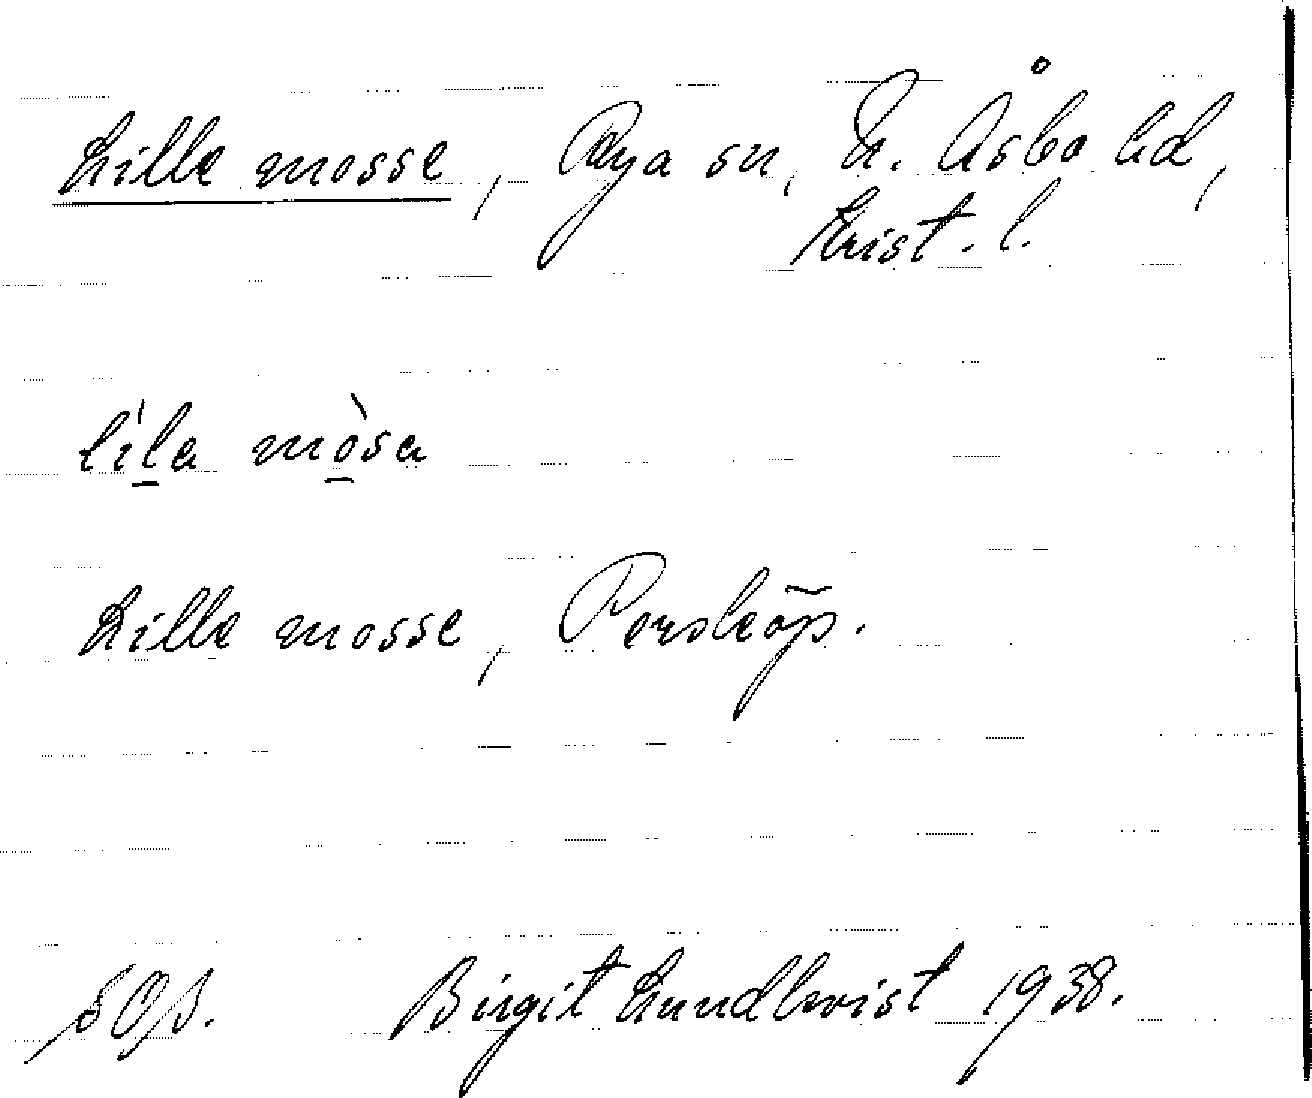 Lille mosse, Rya sn, N. Åsbo hd,
Krist. l.
lìla mòsa
Lille mosse, Perskōp.
SOp. Birgit Lundkvist 1938.